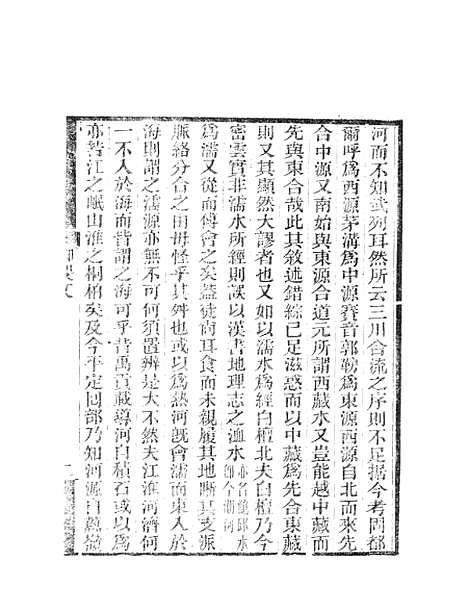 河而不知武列耳然所云三川合流之序則不足据今考固都
爾呼爲西源茅溝爲中源賽音郭勒爲東源西源自北而來先
合中源又南始與東源合道元所謂西藏水又豈能越中藏而
先與東合哉此其敘述錯綜已足滋惑而以中藏爲先合東藏
則又其顯然大謬者也又如以濡水爲經白檀北夫白檀乃今
密雲實非濡水所經則誤以漢書地理志之洫水亦名鮑邱水卽今潮河
爲濡又從而傅會之矣蓋徒尚耳食而未親履其地晰其支派
脈絡分合之由毋怪乎其舛也或以爲熱河旣會濡而東入於
海則謂之濡源亦無不可何須置辨是大不然夫江淮河濟何
一不入於海而皆謂之海可乎昔禹貢載導河自積石或以爲
亦若江之岷山淮之桐柏矣及今平定回部乃知河源自蔥嶺